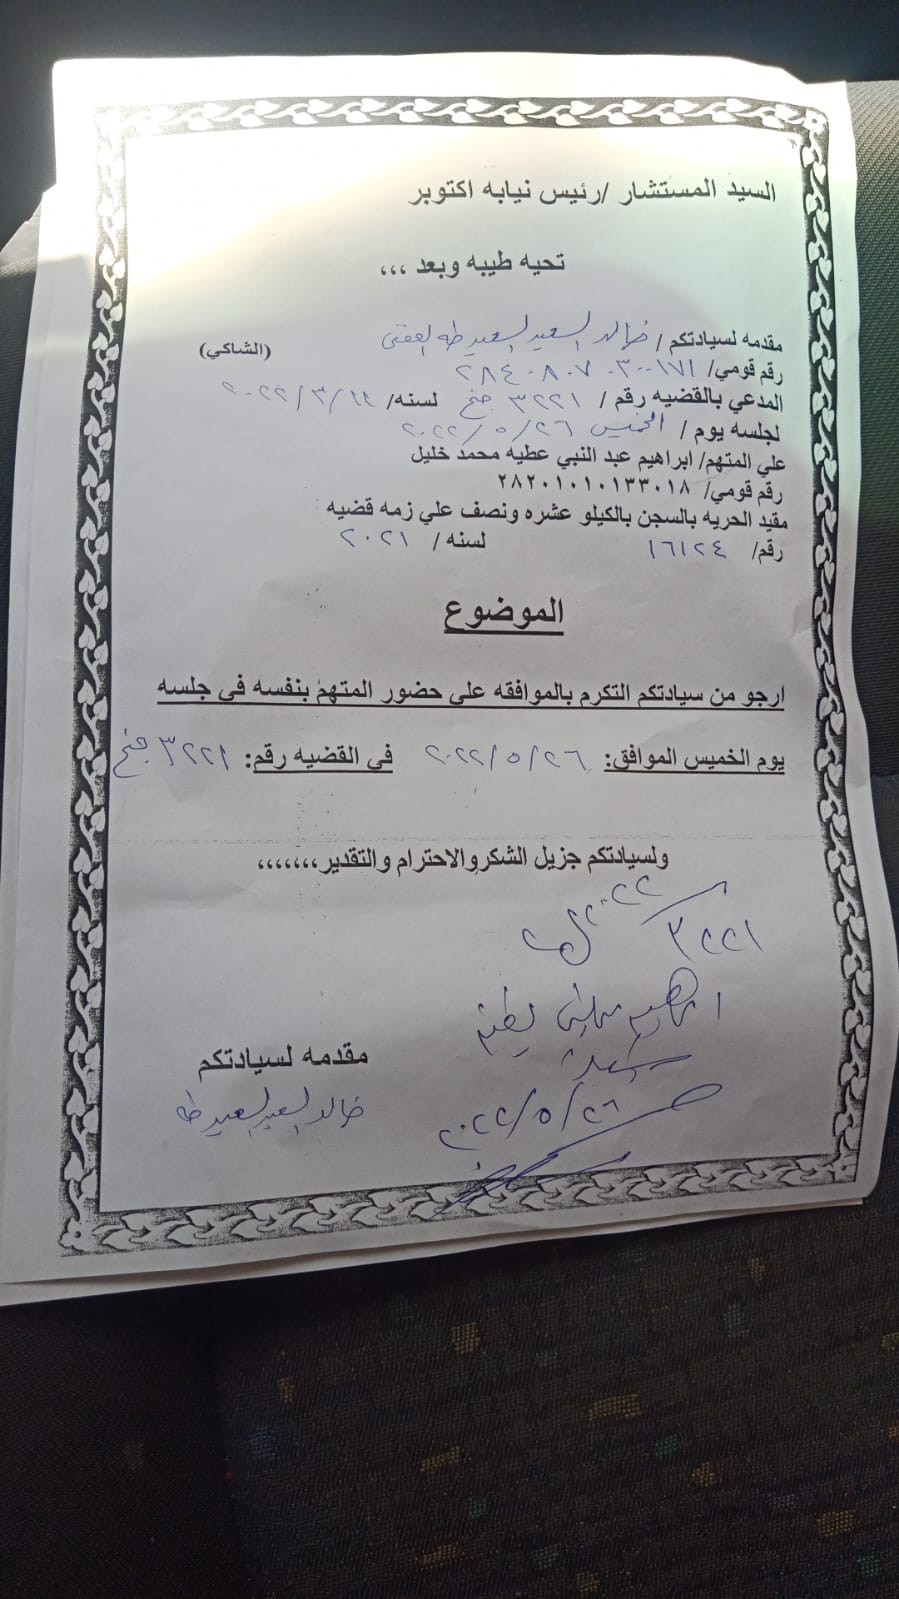 السيد المستشار /رئيس نيابه اكتوبر
تحيه طيبه وبعد ،،،
مقدمه لسيادتكم / خالد السعيد السعيد طه الفقى (الشاكي)
رقم قومي/ ٢٨٤٠٨٠٧٠٣٠٠١٧١
المدعي بالقضيه رقم / ٣٢٢١ جنح لسنه/
لجلسه يوم / الخميس ٢٠٢٢/٥/٢٦
علي المتهم/ ابراهيم عبد النبي عطيه محمد خليل
رقم قومي/ ٢٨٢٠١٠١٠١٣٣٠١٨
مقيد الحريه بالسجن بالكيلو عشره ونصف علي زمه قضيه
رقم/ ١٦١٢٤ لسنه / ٢٠٢١
الموضوع
ارجو من سيادتكم التكرم بالموافقه علي حضور المتهم بنفسه في جلسه
يوم الخميس الموافق: ٢٠٢٢/٥/٢٦ في القضيه رقم: ٣٢٢١ جنح
ولسيادتكم جزيل الشكروالاحترام والتقدير،،،،،،،
٢٠٢٢
٣٢٢١
مقدمه لسيادتكم
خالد السعيد السعيد طه
٢٠٢٢/٥/٢٦